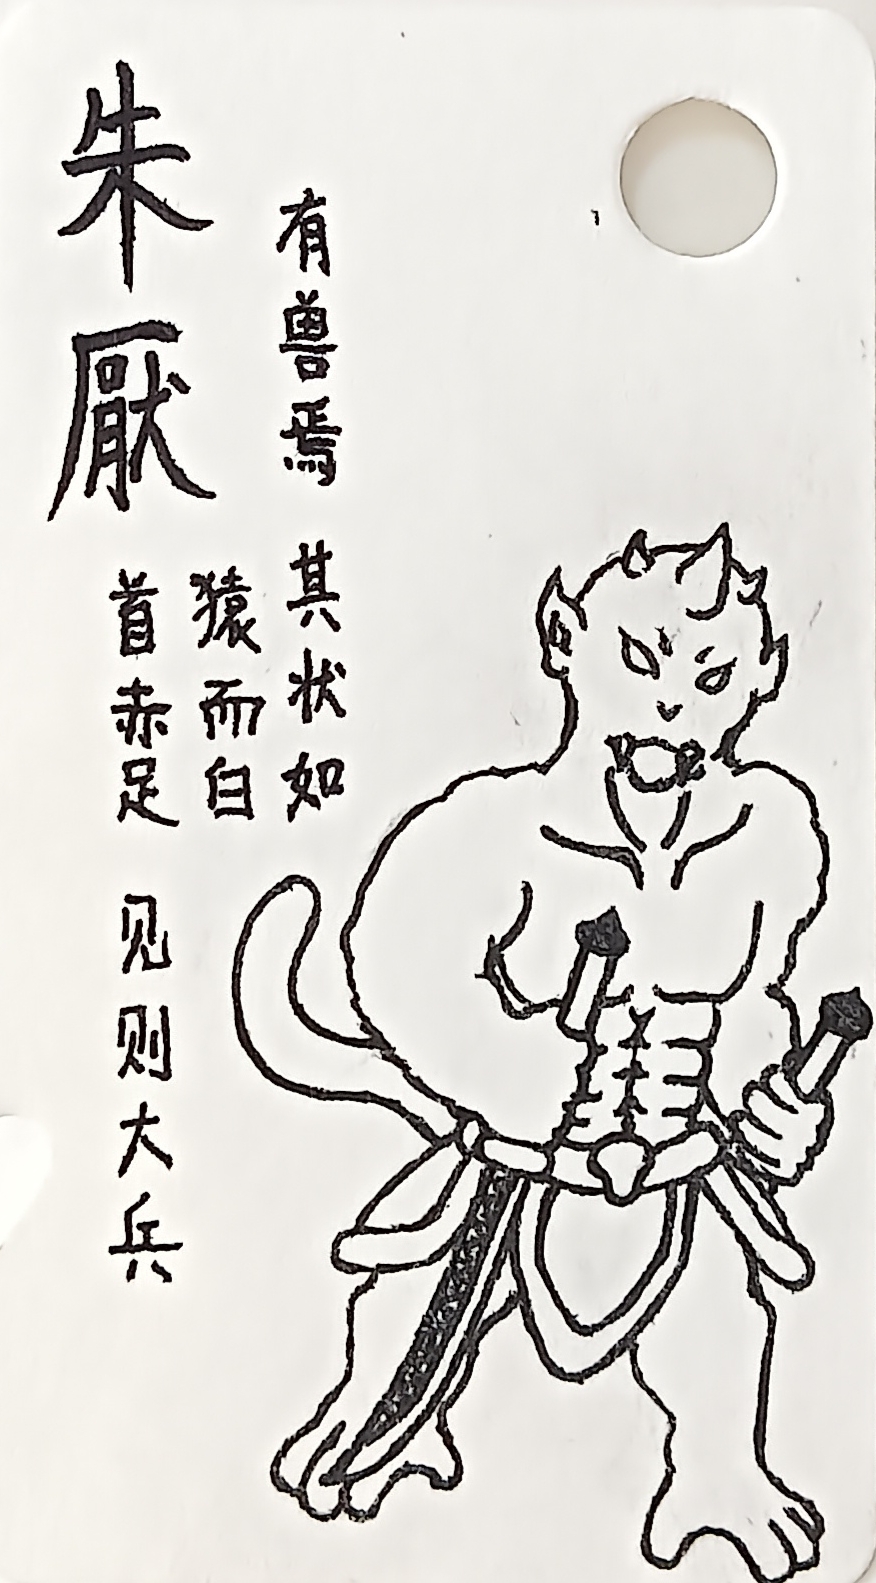 朱厭
有兽焉 其状如
猿而白
首赤足 见则大兵